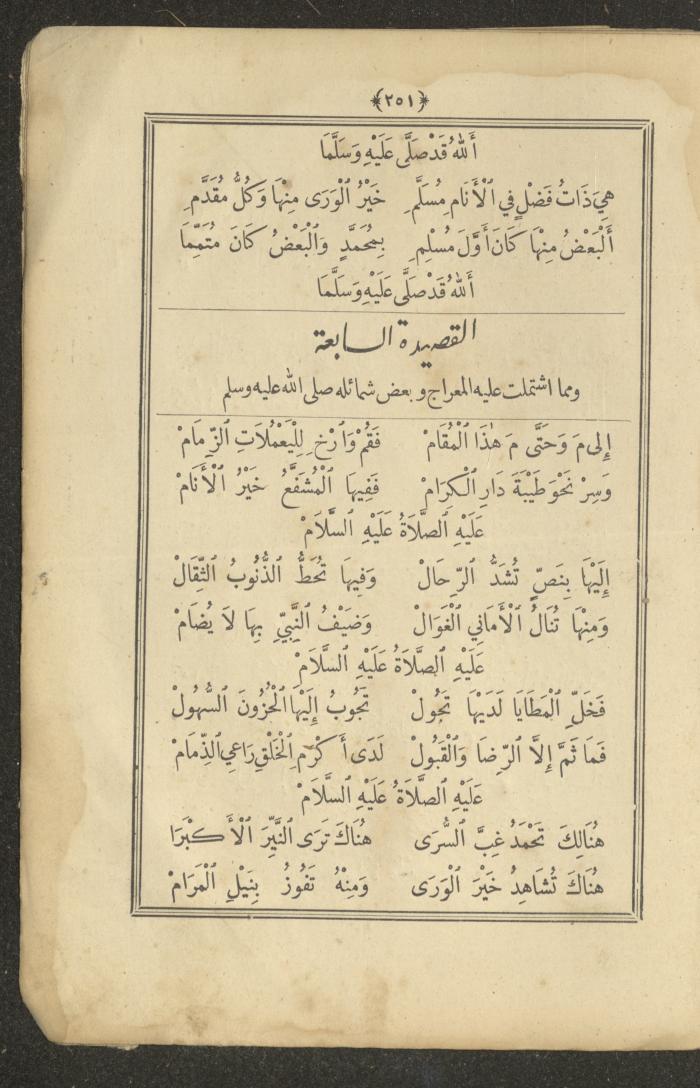 ﴿٢٥١﴾
أَللهُ قَدْ صَلَّى عَلَيْهِ وَسَلَّمَا
هِيَ ذَاتُ فَضْلٍ فِي الْأَنَامِ مُسَلَّمِ خَيْرُ الْوَرَى مِنْهَا وَكُلُّ مُقَدَّمِ
أَلْبَعْضُ مِنْهَا كَانَ أَوَّلَ مُسْلِمِ بِمُحَمَّدٍ وَالْبَعْضُ كَانَ مُتَمِّمَا
أَللهُ قَدْ صَلَّى عَلَيْهِ وَسَلَّمَا
القصيدة السابعة
ومما اشتملت عليه المعراج وبعض شمائله صلى الله عليه وسلم
إِلَى مَ وَحَتَّى مَ هٰذَا الْمُقَامْ فَقُمْ وَارْخِ لِلْيَعْمُلَاتِ الزِّمَامْ
وَسِرْ نَحْوَ طَيْبَةَ دَارِ الْكِرَامْ فَفِيهَا الْمُشَفَّعُ خَيْرُ الْأَنَامْ
عَلَيْهِ الصَّلَاةُ عَلَيْهِ السَّلَامْ
إِلَيْهَا بِنَصٍّ تُشَدُّ الرِّحَالْ وَفِيهَا تُحَطُّ الذُّنُوبُ الثِّقَالْ
وَمِنْهَا تُنَالُ الْأَمَانِي الْغَوَالْ وَضَيْفُ النَّبِيِّ بِهَا لَا يُضَامْ
عَلَيْهِ الصَّلَاةُ عَلَيْهِ السَّلَامْ
فَخَلِّ الْمَطَايَا لَدَيْهَا تَجُولْ تَجُوبُ إِلَيْهَا الْحُزُونَ السُّهُولْ
فَمَا ثَمَّ إِلَّا الرِّضَا وَالْقَبُولْ لَدَى أَكْرَمِ الْخَلْقِ رَاعِي الذِّمَامْ
عَلَيْهِ الصَّلَاةُ عَلَيْهِ السَّلَامْ
هُنَالِكَ تَحْمَدُ غِبَّ السُّرَى هُنَاكَ تَرَى النَّيِّرَ الْأَكْبَرَا
هُنَاكَ تُشَاهِدُ خَيْرَ الْوَرَى وَمِنْهُ تَفُوزُ بِنَيْلِ الْمَرَامْ